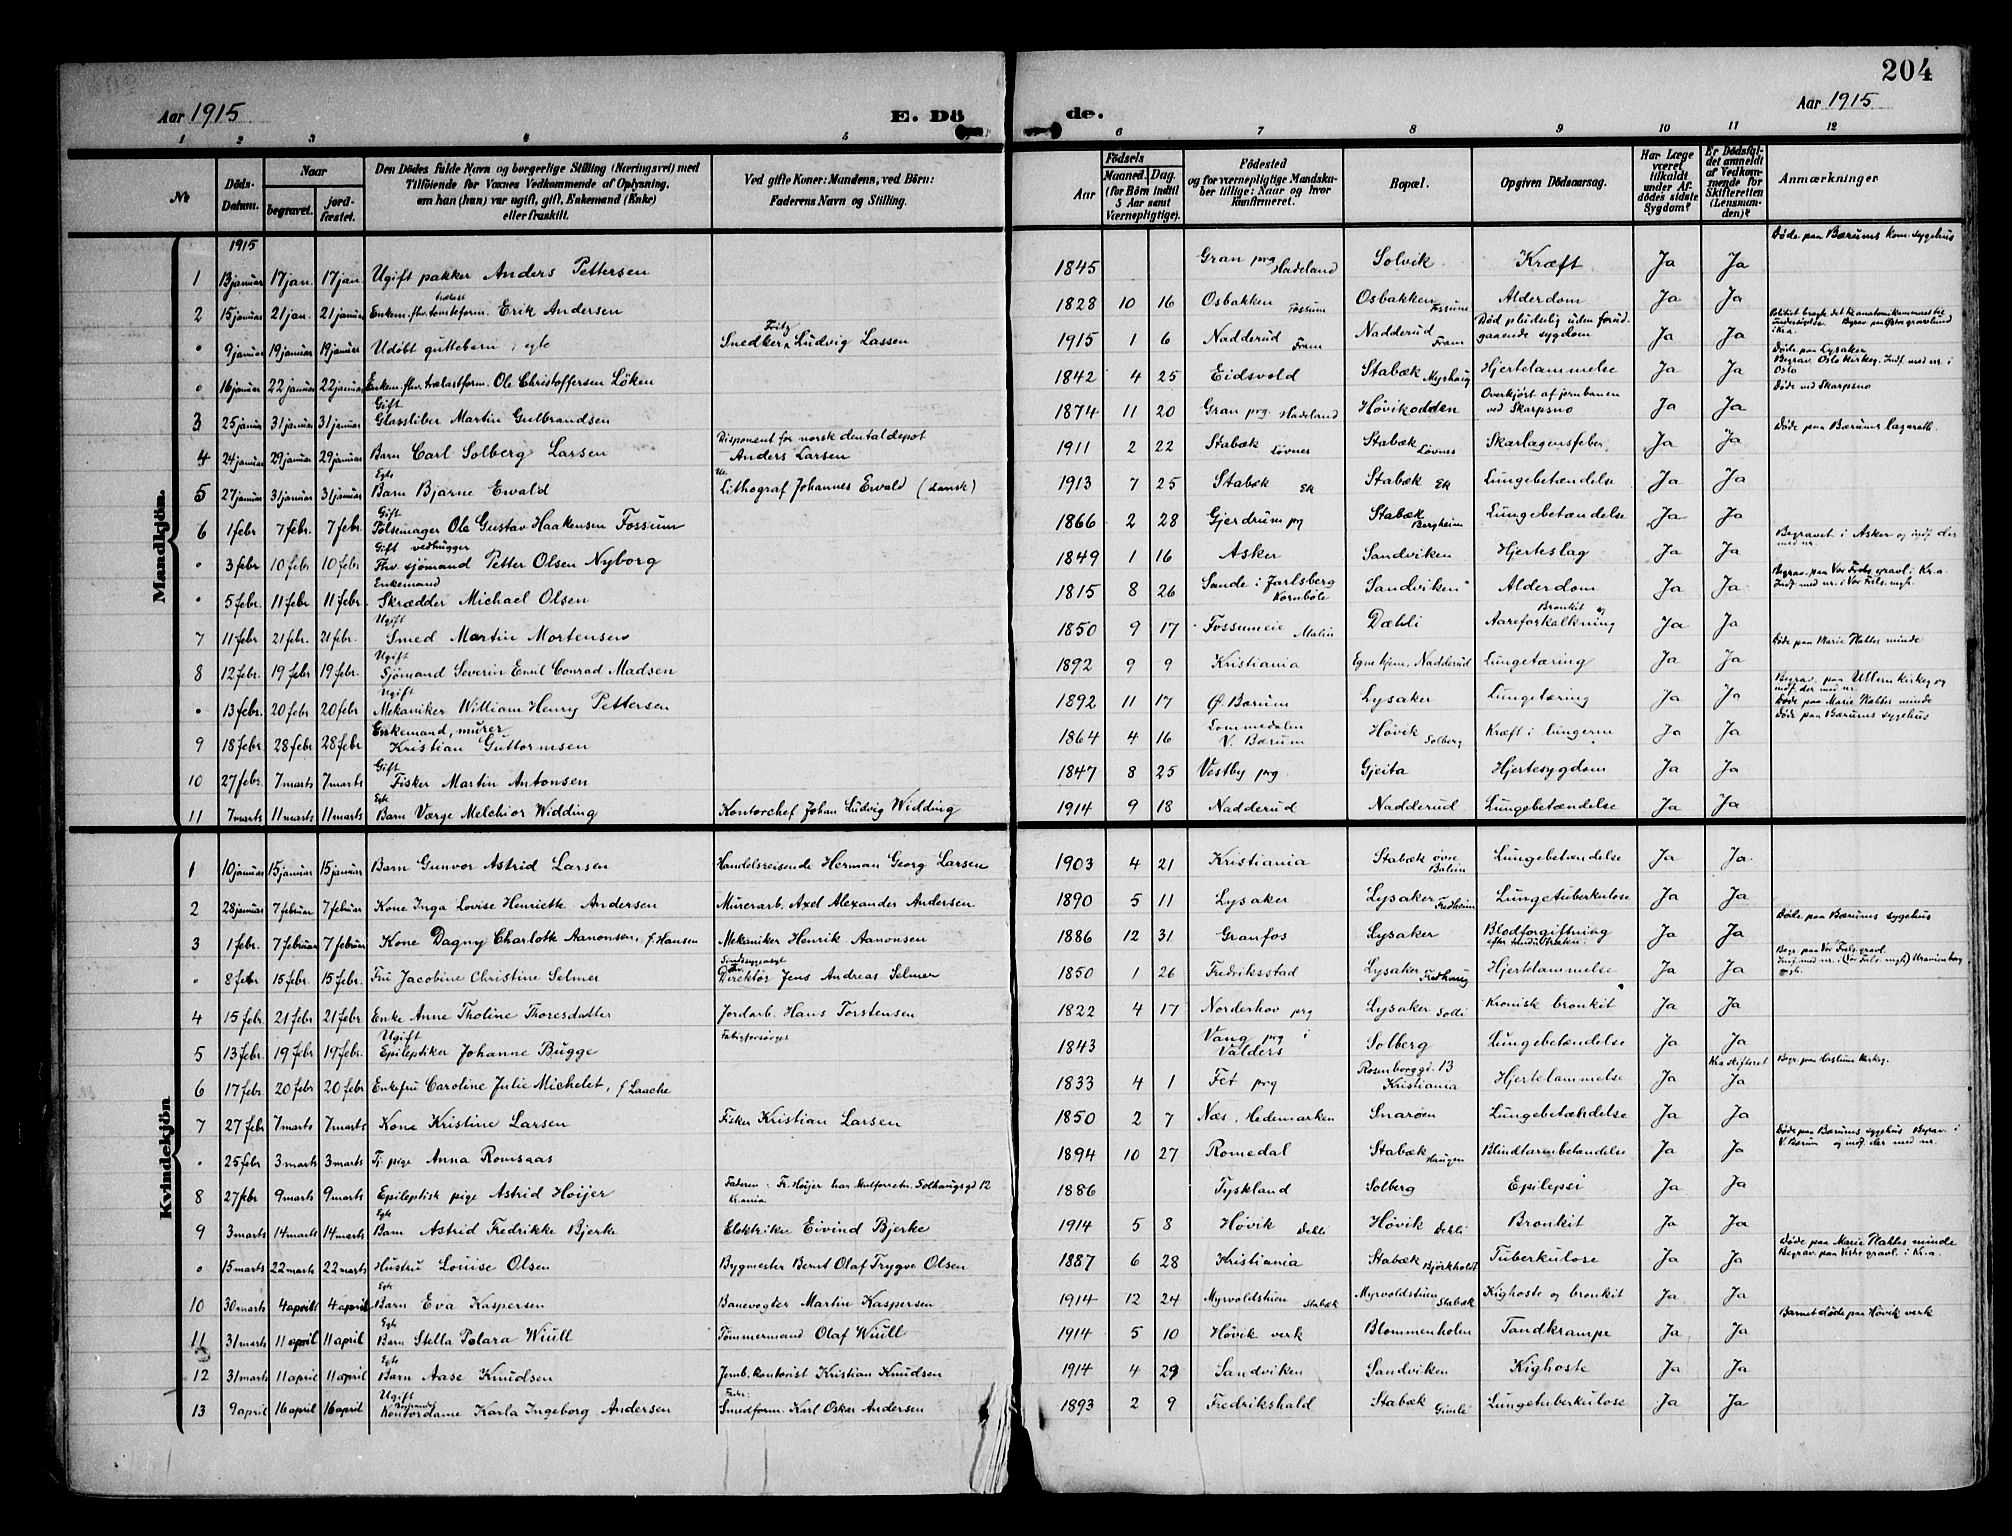 204
Aar 1915
E. Dö
de.
Aar 1915
1 2 3 4 5 6 7 8 9 10 11 12
No
Döds-Datum.
Naar
begravet.
jordfæstet.
Den Dödes fulde Navn og borgerlige Stilling (Næringsvei) med
Tilföiende for Voxnes Vedkommende af Oplysning,
om han (hun) var ugift, gift, Enkemand (Enke)
eller fraskilt.
Ved gifte Koner: Mandens, ved Börn:
Faderens Navn og Stilling.
Födsels
Aar
Maaned. Dag.
(for Börn indtil
5 Aar samt
Værnepligtige).
Födested
og for værnepligtige Mandskaber tillige: Naar og hvor
konfirmeret.
Bopæl.
Opgiven Dödsaarsag.
Har Læge
været
tilkaldt
under Afdödes sidste
Sygdom?
Er Dödsfaldet anmeldt
af Vedkommende for
Skifteretten
(Lensmanden)?
Anmærkninger
Mandkjön.
1915
1 13 januar 17 jan. 17 jan. Ugift pakker Anders Pettersen 1845 Gran prg Hadeland Solvik Kræft Ja Ja Døde paa Bærums kom. sygehus
2 15 januar 21 jan. 21 januar Enkem. fhv. tomteform. Erik Andersen 1828 10 16 Osbakken Fossum Osbakken Fossum Alderdom Ja Ja
" 9 januar 19 januar 19 januar Udöbt guttebarn, egte Snedker Fritz Ludvig Lassen 1915 1 6 Nadderud Fram Nadderud Fram Død pludselig uden forudgaaende sygdom Ja Ja
" 16 januar 22 januar 22 januar Enkem. fhv. trælastform. Ole Christoffersen Löken 1842 4 25 Eidsvold Stabæk Myrhaug Hjertelammelse Ja Ja Døde paa Lysaker Begrav. Oslo kirkeg. Indf. med nr. i Oslo
3 25 januar 31 januar 31 januar Gift Glassliber Martin Gulbrandsen 1874 11 20 Gran prg. Hadeland Høvikodden Overkjørt af jernbanen ved Skarpsno Ja Ja Døde ved Skarpsno
4 24 januar 29 januar 29 januar Barn Carl Solberg Larsen Disponent for norsk dentaldepot Anders Larsen 1911 2 22 Stabæk Løvnes Stabæk Løvnes Skarlagensfeber Ja Ja Døde paa Bærums lazarett.
5 27 januar 31 januar 31 januar Egte Barn Bjarne Ewald Lithograf Johannes Ewald (dansk) 1913 7 25 Stabæk Ek Stabæk Ek Lungebetændelse Ja Ja
6 1 febr 7 febr. 7 febr Gift Pølsemager Ole Gustav Haakensen Fossum 1866 2 28 Gjerdrum prg Stabæk Bergheim Lungebetændelse Ja Ja
" 3 febr 10 febr 10 febr. Gift vedhugger Fhv. sjømand Petter Olsen Nyborg 1849 1 16 Asker Sandviken Hjerteslag Ja Ja Begravet i Asker og indf. der med nr.
" 5 febr. 11 febr 11 febr. Enkemand Skrædder Michael Olsen 1815 8 26 Sande i Jarlsberg Kornbøle Sandviken Alderdom Ja Ja Begrav. paa Vor Frels. gravl. i Kr.a. Indf. med nr. i Vor Frls. mgh.
7 11 febr. 21 febr. 21 febr. Ugift Smed Martin Mortensen 1850 9 17 Fossumeie Malin Dæhli Bronkit og Aareforkalkning Ja Ja
8 12 febr. 19 febr 19 febr. Ugift Sjømand Severin Emil Conrad Madsen 1892 9 9 Kristiania Egne hjem, Nadderud Lungetæring Ja Ja Døde paa Marie Plattes minde
" 13 febr. 20 febr 20 febr. Ugift Mekaniker William Henry Pettersen 1892 11 17 Ø. Bærum Lysaker Lungetæring Ja Ja Begrav. paa Ullern kirkeg og indf. der med nr. Døde paa Marie Plattes minde
9 18 febr. 28 febr 28 febr. Enkemand, murer Kristian Guttormsen 1864 4 16 Lommedalen V. Bærum Høvik Solberg Kræft i lungerne Ja Ja Døde paa Bærums sygehus
10 27 febr. 7 marts 7 marts Gift Fisker Martin Antonsen 1847 8 25 Vestby prg. Gjeita Hjertesygdom Ja Ja
11 7 marts 11 marts 11 marts Egte Barn Værge Melchior Widding Kontorchef Johan Ludvig Widding 1914 9 18 Nadderud Nadderud Lungebetændelse Ja Ja
Kvindekjön.
1 10 januar 15 januar 15 januar Barn Gunvor Astrid Larsen Handelsreisende Herman Georg Larsen 1903 4 21 Kristiania Stabæk øvre Lungebetændelse Ja Ja.
2 28 januar 7 februar 7 februar Kone Inga Lovise Henriette Andersen Murerarb. Axel Alexander Andersen 1890 5 11 Lysaker Lysaker Fredheim Lungetuberkulose Ja Ja
3 1 febr. 7 februar 7 februar Kone Dagny Charlotte Aanonsen, f Hansen Mekaniker Henrik Aanonsen 1886 12 31 Granfos Lysaker Blodforgiftning Ja Ja Døde paa Bærums sygehus
" 8 febr 15 febr. 15 febr. Fru Jacobine Christine Selmer Sindssygeasyl Direktør Jens Andreas Selmer 1850 1 26 Fredriksstad Lysaker Fredhaug Hjertelammelse Ja Ja
4 15 febr. 21 febr 21 febr. Enke Anne Tholine Thoresdatter Jordarb. Hans Torstensen 1822 4 17 Norderhov prg Lysaker Solli Kronisk bronkit Ja Ja
5 13 febr. 19 febr. 19 febr. Ugift Epileptiker Johanne Bugge Fattigforsörget 1843 Vang prg i Valders Solberg Lungebetændelse Ja Ja
6 17 febr. 20 febr 20 febr Enkefru Caroline Julie Michelet, f Laache 1833 4 1 Fet prg Rosenborggt. 13 Kristiania Hjertelammelse Ja Kr.a skifteret Ja Begr. paa Haslum kirkeg.
7 27 febr 7 marts 7 marts Kone Kristine Larsen Fisker Kristian Larsen 1850 2 7 Næs, Hedemarken Snarøen Lungebetændelse Ja Ja
" 25 febr. 3 marts 3 marts Tj. pige Anna Romsaas 1894 10 27 Romedal Stabæk Haugen Blindtarmbetændelse Ja Ja Døde paa Bærums sygehus Begrav. i V. Bærum og indf. der med nr.
8 27 febr 9 marts 9 marts. Epileptisk pige Astrid Höijer Faderen: Fr. Höijer har kulforretn. Solhaugsgd 12 Kr.ania 1886 Tyskland Solberg Epilepsi Ja Ja
9 3 marts 14 marts 14 marts Egte Barn Astrid Fredrikke Bjerke Elektriker Eivind Bjerke 1914 5 8 Høvik Dehli Høvik Dehli Bronkit Ja Ja
" 15 marts 22 marts 22 marts Hustru Louise Olsen Bygmester Bernt Olaf Trygve Olsen 1887 6 28 Kristiania Stabæk Bjørkholdt Tuberkulose Ja Ja Døde paa Marie Plattes minde Begrav. paa Vestre gravl. i Kr.a.
10 30 marts 4 april 4 april Egte Barn Eva Kaspersen Banevogter Martin Kaspersen 1914 12 24 Myrvoldstien Stabæk Myrvoldstien Stabæk Kighoste og bronkit Ja Ja
11 31 marts 11 april 11 april Egte Barn Stella Polara Wiull Tömmermand Olaf Wiull 1914 5 10 Høvik verk Blommenholm Tandkrampe Ja Ja Barnet døde paa Høvik verk
12 31 marts 11 april 11 april Egte Barn Aase Knudsen Jernb. kontorist Kristian Knudsen 1914 4 29 Sandviken Sandviken Kighoste Ja Ja
13 9 april 16 april 16 april Ugift Kontordame Karla Ingeborg Andersen Fader: Smedform. Karl Oskar Andersen 1893 2 9 Fredrikshald Stabæk Gimle Lungetuberkulose Ja Ja